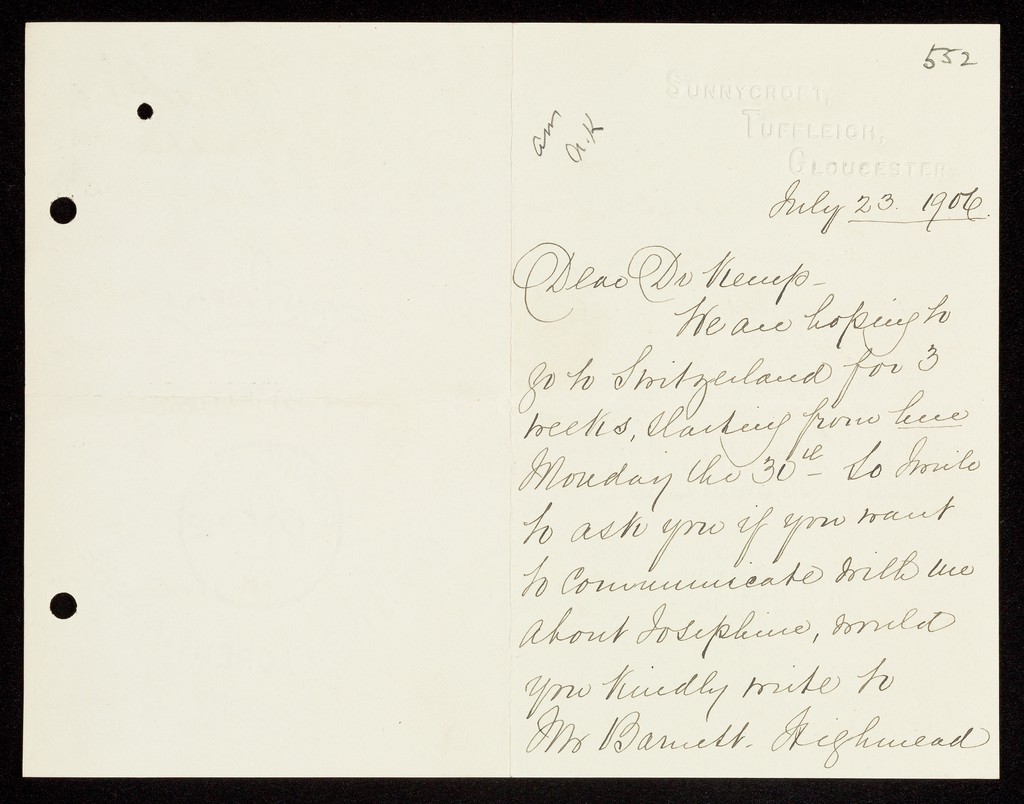 552
SUNNYCROFT,
TUFFLEIGH,
GLOUCESTER.
July 23. 1906.
Dear Dr Kemp -
We are hoping to
go to Switzerland for 3
weeks, starting from here
Monday the 30th - so I write
to ask you if you want
to communicate with me
about Josephine, would
you kindly write to
Mr Barnett. Highmead